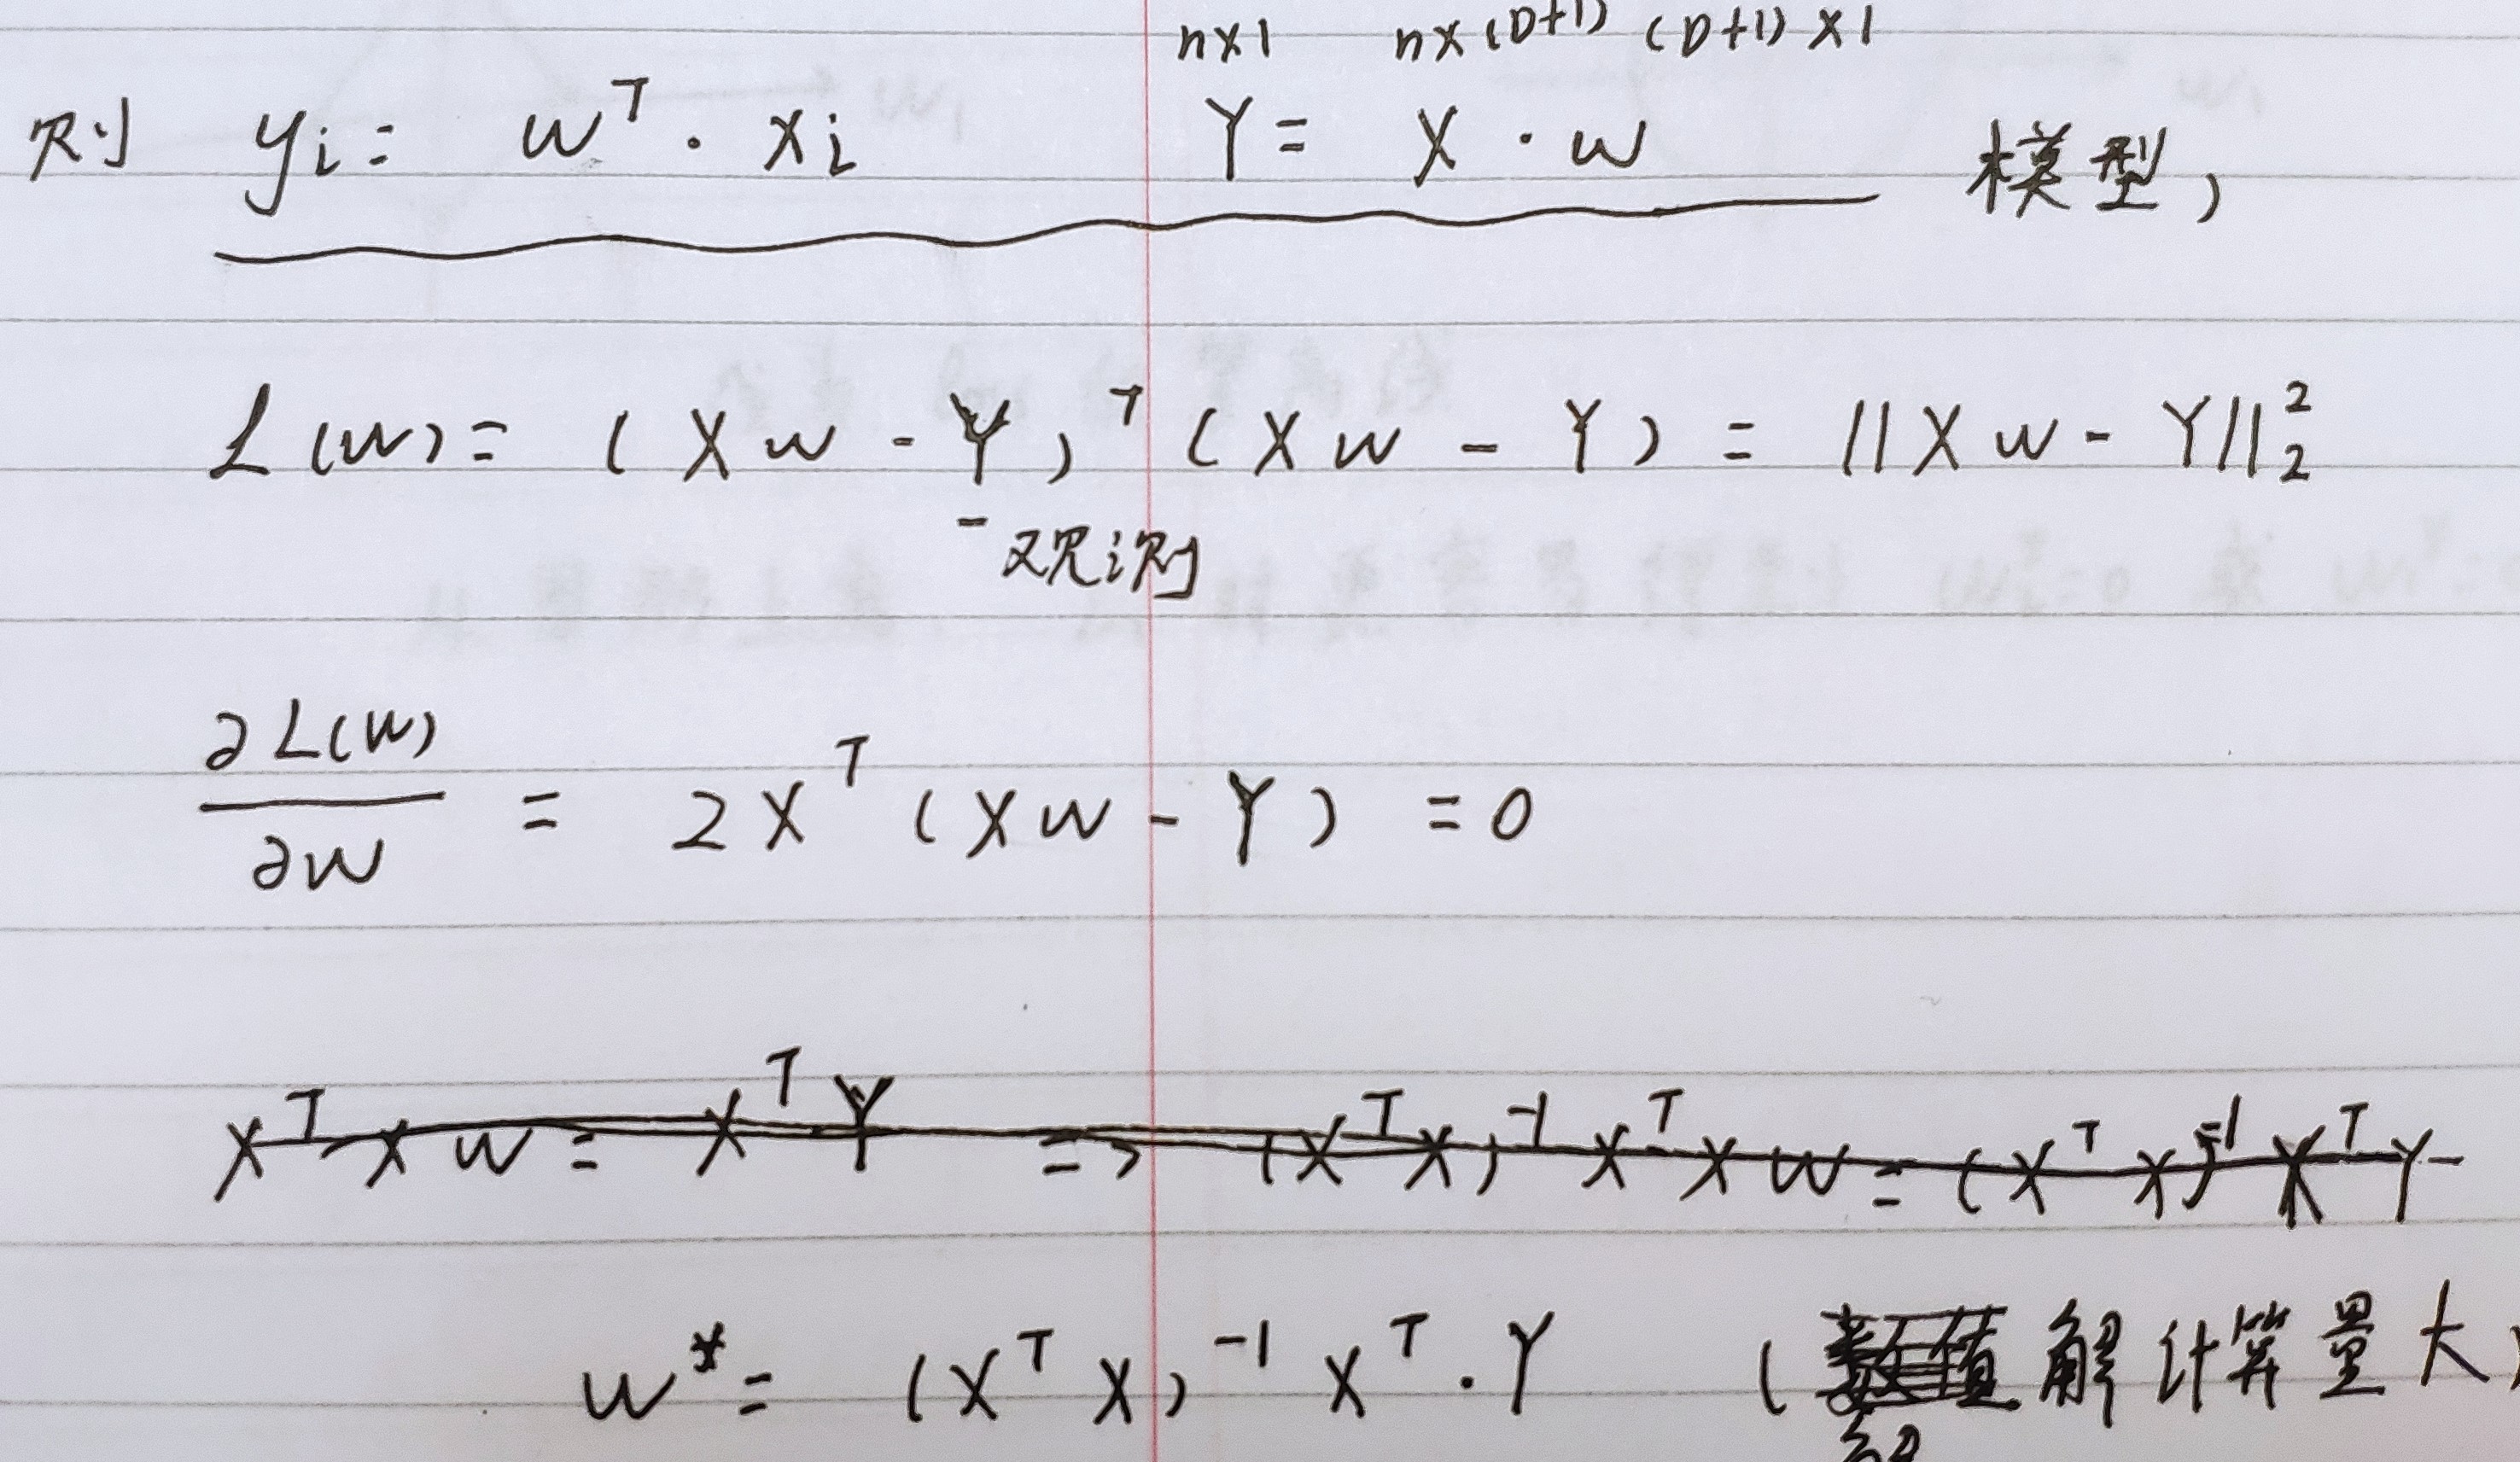 n×1 n×(D+1) (D+1)×1
则 yi = w^T · xi Y = X · w 模型,
L(w) = (Xw - Y)^T (Xw - Y) = ||Xw - Y||_2^2
- 观测
∂L(w)/∂w = 2X^T (Xw - Y) = 0
X^T X w = X^T Y => (X^T X)^-1 X^T X w = (X^T X)^-1 X^T Y
w* = (X^T X)^-1 X^T · Y (数值解计算量大)